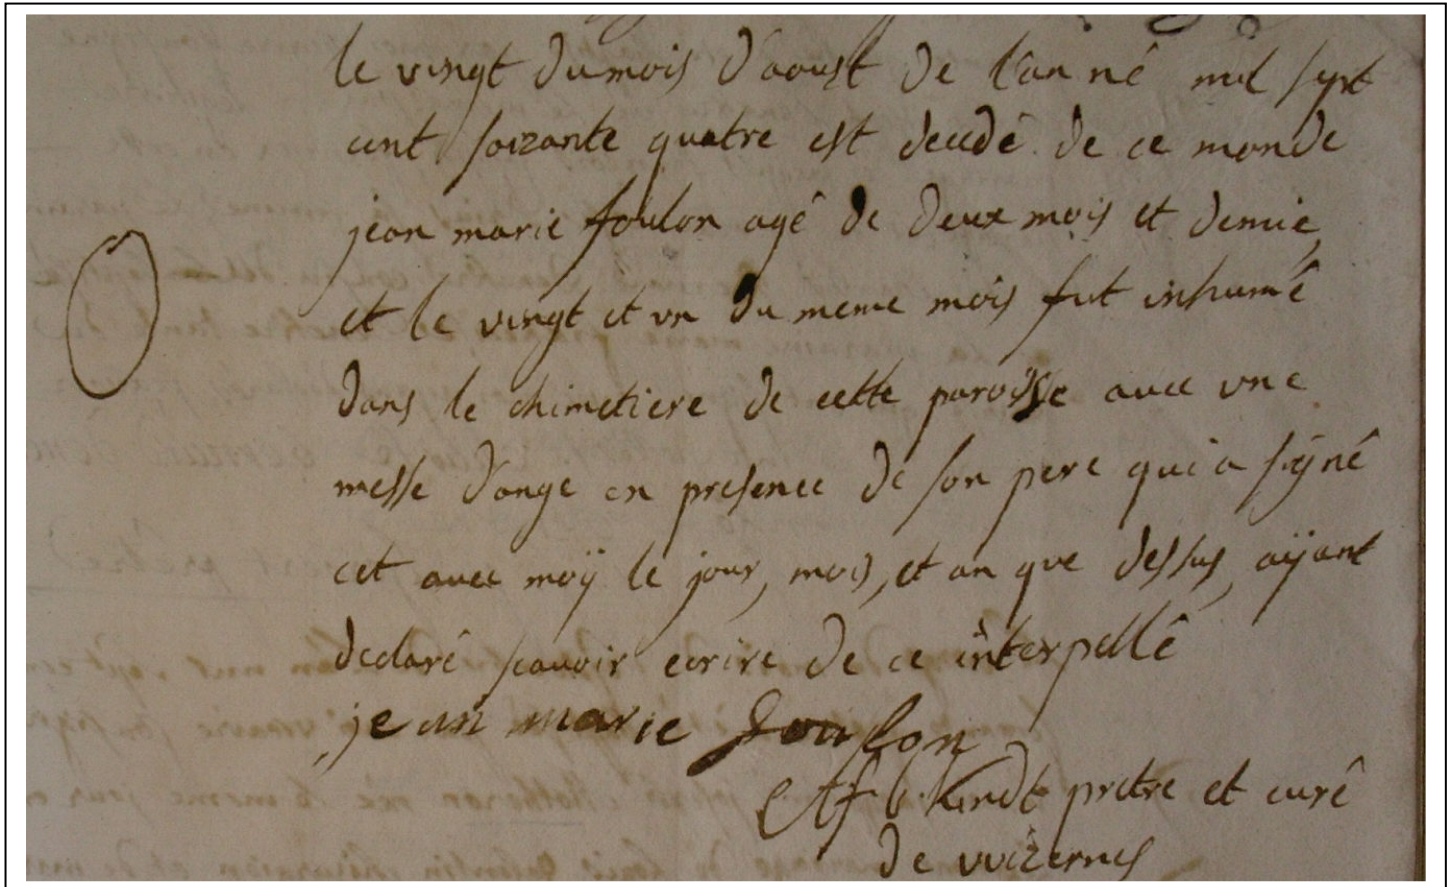 le vingt du mois d'aoust de l'an né mil sept
cent soizante quatre est decedé de ce monde
jean marie foulon agé de deux mois et demie,
et le vingt et vn du meme mois fut inhumé
dans le chimetiere de cette paroisse avec vne
messe d'ange en presence de son pere qui a signé
cet avec moÿ le jour, mois, et an que dessus, aÿant
declaré scavoir ecrire de ce interpellé
jean marie foulon
pretre et curé
de wizernes